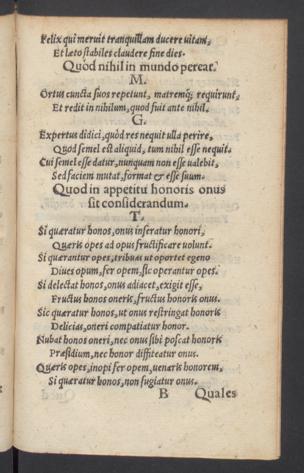 Felix qui meruit tranquillam ducere uitam,
Et læto stabiles claudere fine dies.
Quòd nihil in mundo pereat.
M.
Ortus cuncta suos repetunt, matremq; requirunt,
Et redit in nihilum, quod fuit ante nihil.
G.
Expertus didici, quòd res nequit ulla perire,
Quod semel est aliquid, tum nihil esse nequit.
Cui semel esse datur, nunquam non esse ualebit,
Sed faciem mutat, format & esse suum.
Quod in appetitu honoris onus
sit considerandum.
T.
Si quæratur honos, onus inseratur honori,
Quæris opes ad opus fructificare uolunt.
Si quærantur opes, tribuas ut oportet egeno
Diues opum, fer opem, sic operantur opes.
Si delectat honos, onus adiacet, exigit esse,
Fructus honos oneris, fructus honoris onus.
Sic quæratur honos, ut onus restringat honoris
Delicias, oneri compatiatur honor.
Nubat honos oneri, nec onus sibi poscat honoris
Præsidium, nec honor diffiteatur onus.
Quæris opes, inopi fer opem, uenaris honorem,
Si quæratur honos, non fugiatur onus.
B Quales